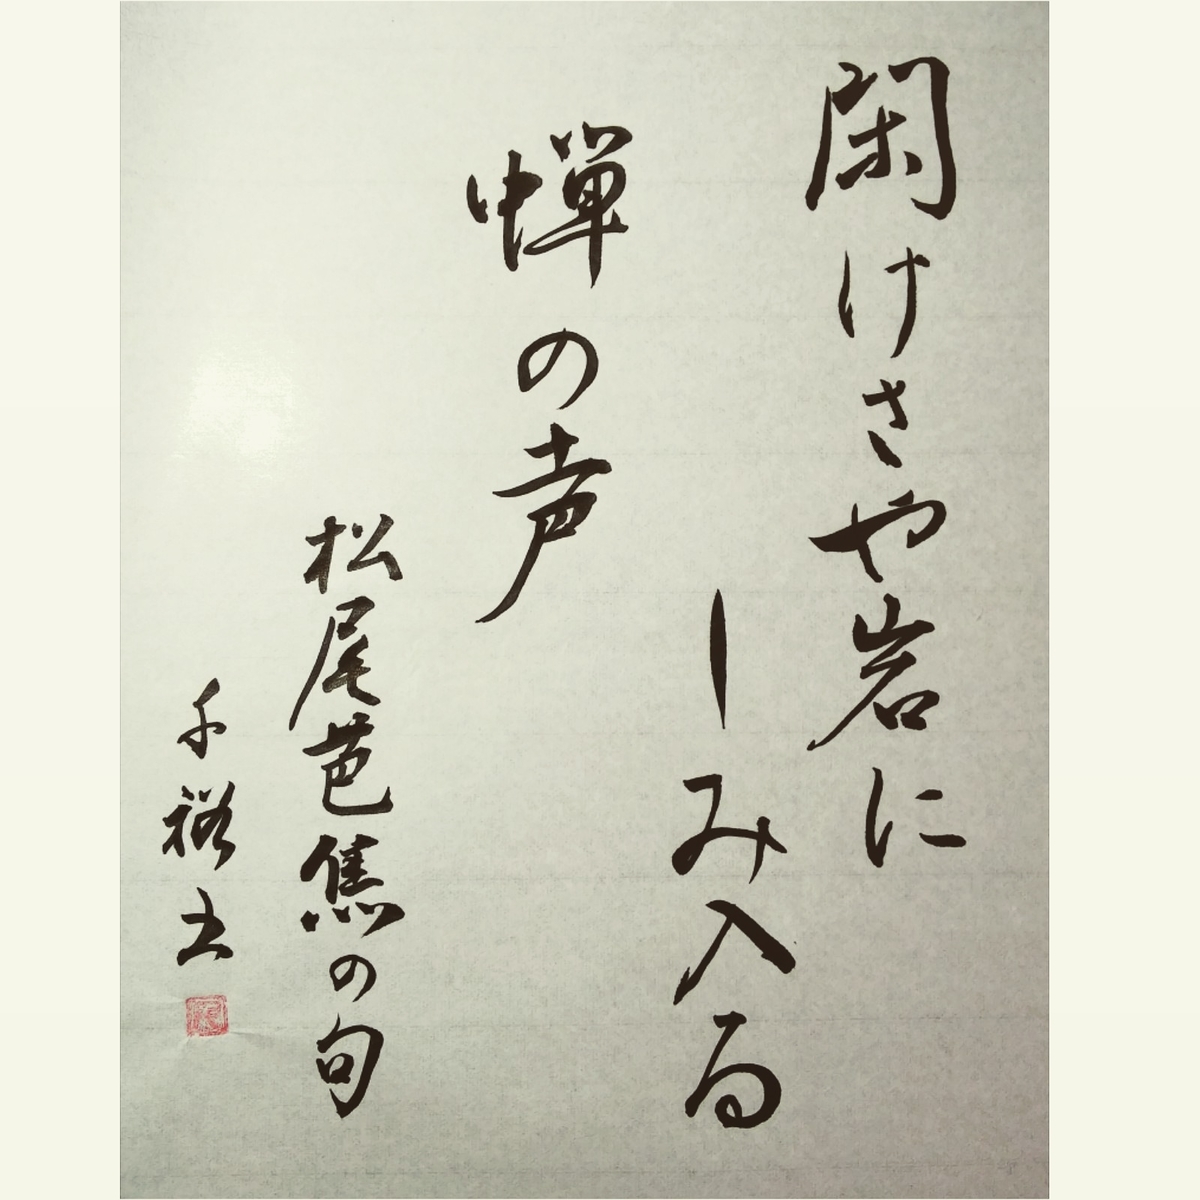 閑けさや岩に
しみ入る
蝉の声
松尾芭蕉の句
千裕書